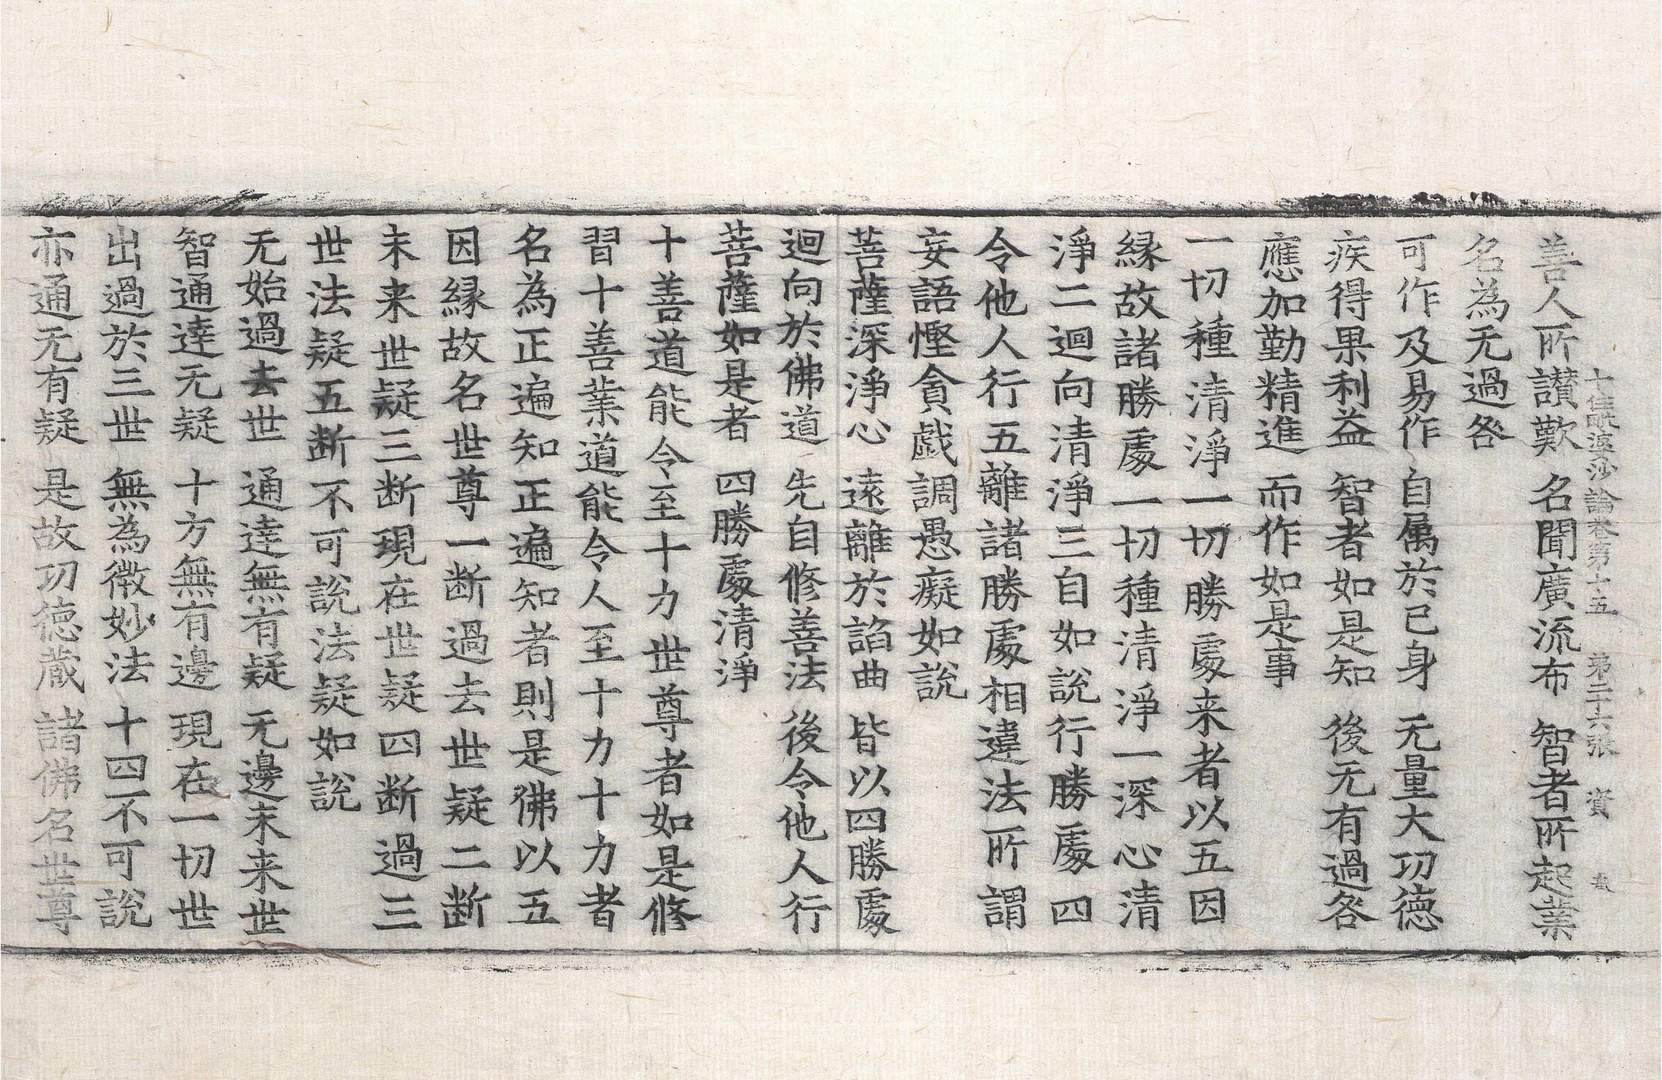 十住毗婆沙論卷第十五 第二十六張 資
善人所讃歎 名聞廣流布 智者所起業
名為无過咎
可作及易作 自属於己身 无量大功德
疾得果利益 智者如是知 後无有過咎
應加勤精進 而作如是事
一切種清淨一切勝處来者以五因
縁故諸勝處一切種清淨一深心清
淨二迴向清淨三自如說行勝處四
令他人行五離諸勝處相違法所謂
妄語慳貪戱調愚癡如說
菩薩深淨心 遠離於諂曲 皆以四勝處
迴向於佛道 先自修善法 後令他人行
菩薩如是者 四勝處清淨
十善道能令至十力世尊者如是修
習十善業道能令人至十力十力者
名為正遍知正遍知者則是佛以五
因縁故名世尊一断過去世疑二断
未来世疑三断現在世疑四断過三
世法疑五断不可說法疑如說
无始過去世 通達無有疑 无邊未来世
智通達无疑 十方無有邊 現在一切世
出過於三世 無為微妙法 十四不可說
亦通无有疑 是故功徳蔵 諸佛名世尊